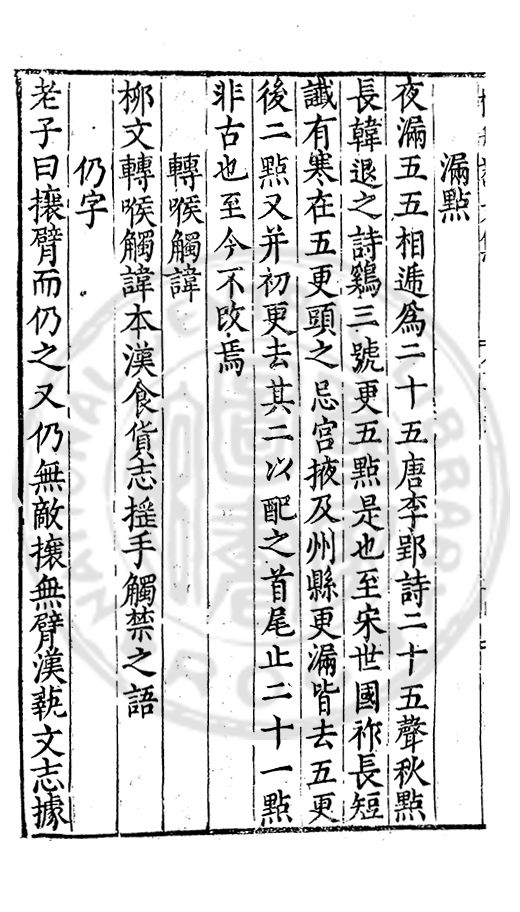 漏點
夜漏五五相遞爲二十五唐李郢詩二十五聲秋點
長韓退之詩鷄三號更五點是也至宋世國祚長短
讖有寒在五更頭之忌宮掖及州縣更漏皆去五更
後二點又并初更去其二以配之首尾止二十一點
非古也至今不改焉
轉喉觸諱
柳文轉喉觸諱本漢食貨志揺手觸禁之語
仍字
老子曰攘臂而仍之又仍無敵攘無臂漢藝文志據